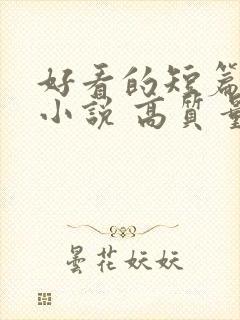 好看的短篇
小説 高質量
曇花妖妖